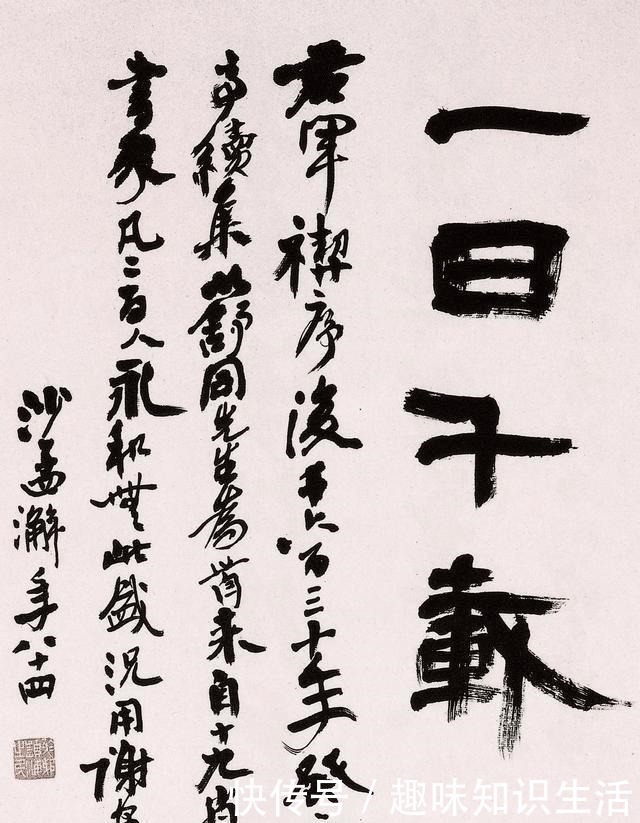 一日千載
右軍禊序後千六百三十年癸
續集以舒同先生為首來自十九省
書家凡二百人永和無此盛況用謝安
沙孟澥年八十四
快传号 / 趣味知识生活